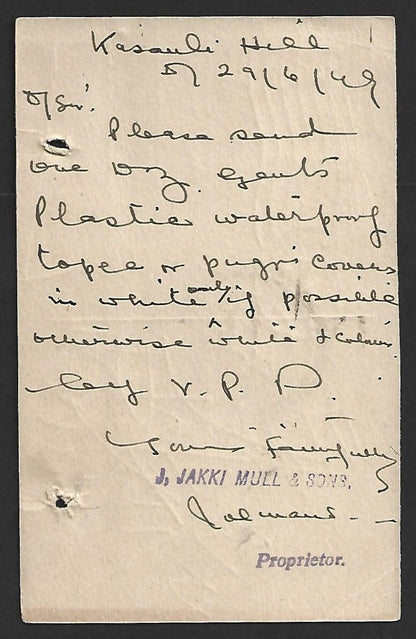 Kasauli Hill
D/ 29/6/49
D/Sir.
Please send
one Doz. gents
Plastic waterproof
topee or pugri covers
in white only if possible
otherwise white & colour
by V. P. P.
Yours faithfully
J, JAKKI MULL & SONS,
Proprietor.